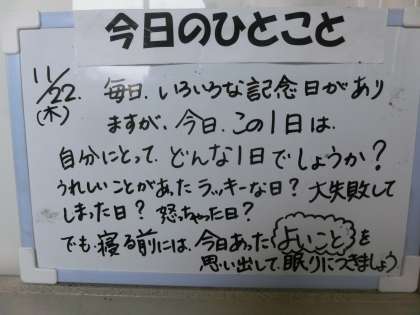 今日のひとこと
11/22.(木) 毎日、いろいろな記念日があり
ますが、今日、この1日は、
自分にとって、どんな1日でしょうか?
うれしいことがあったラッキーな日? 大失敗して
しまった日? 怒っちゃった日?
でも、寝る前には、今日あったよいことを
思い出して、眠りにつきましょう